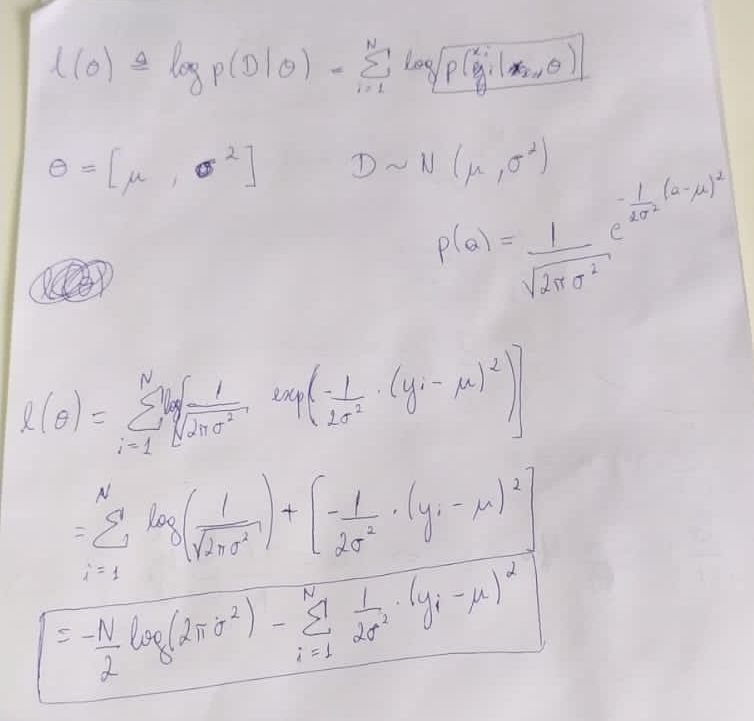 l(θ) ≜ log p(D|θ) = Σ_{i=1}^{N} log p(y_i | θ)
θ = [μ, σ²] D ~ N(μ, σ²)
p(a) = 1/√(2πσ²) e^{-1/(2σ²) (a-μ)²}
l(θ) = Σ_{i=1}^{N} log[1/√(2πσ²) exp(-1/(2σ²) · (y_i - μ)²)]
= Σ_{i=1}^{N} log(1/√(2πσ²)) + [-1/(2σ²) · (y_i - μ)²]
= -N/2 log(2πσ²) - Σ_{i=1}^{N} 1/(2σ²) · (y_i - μ)²